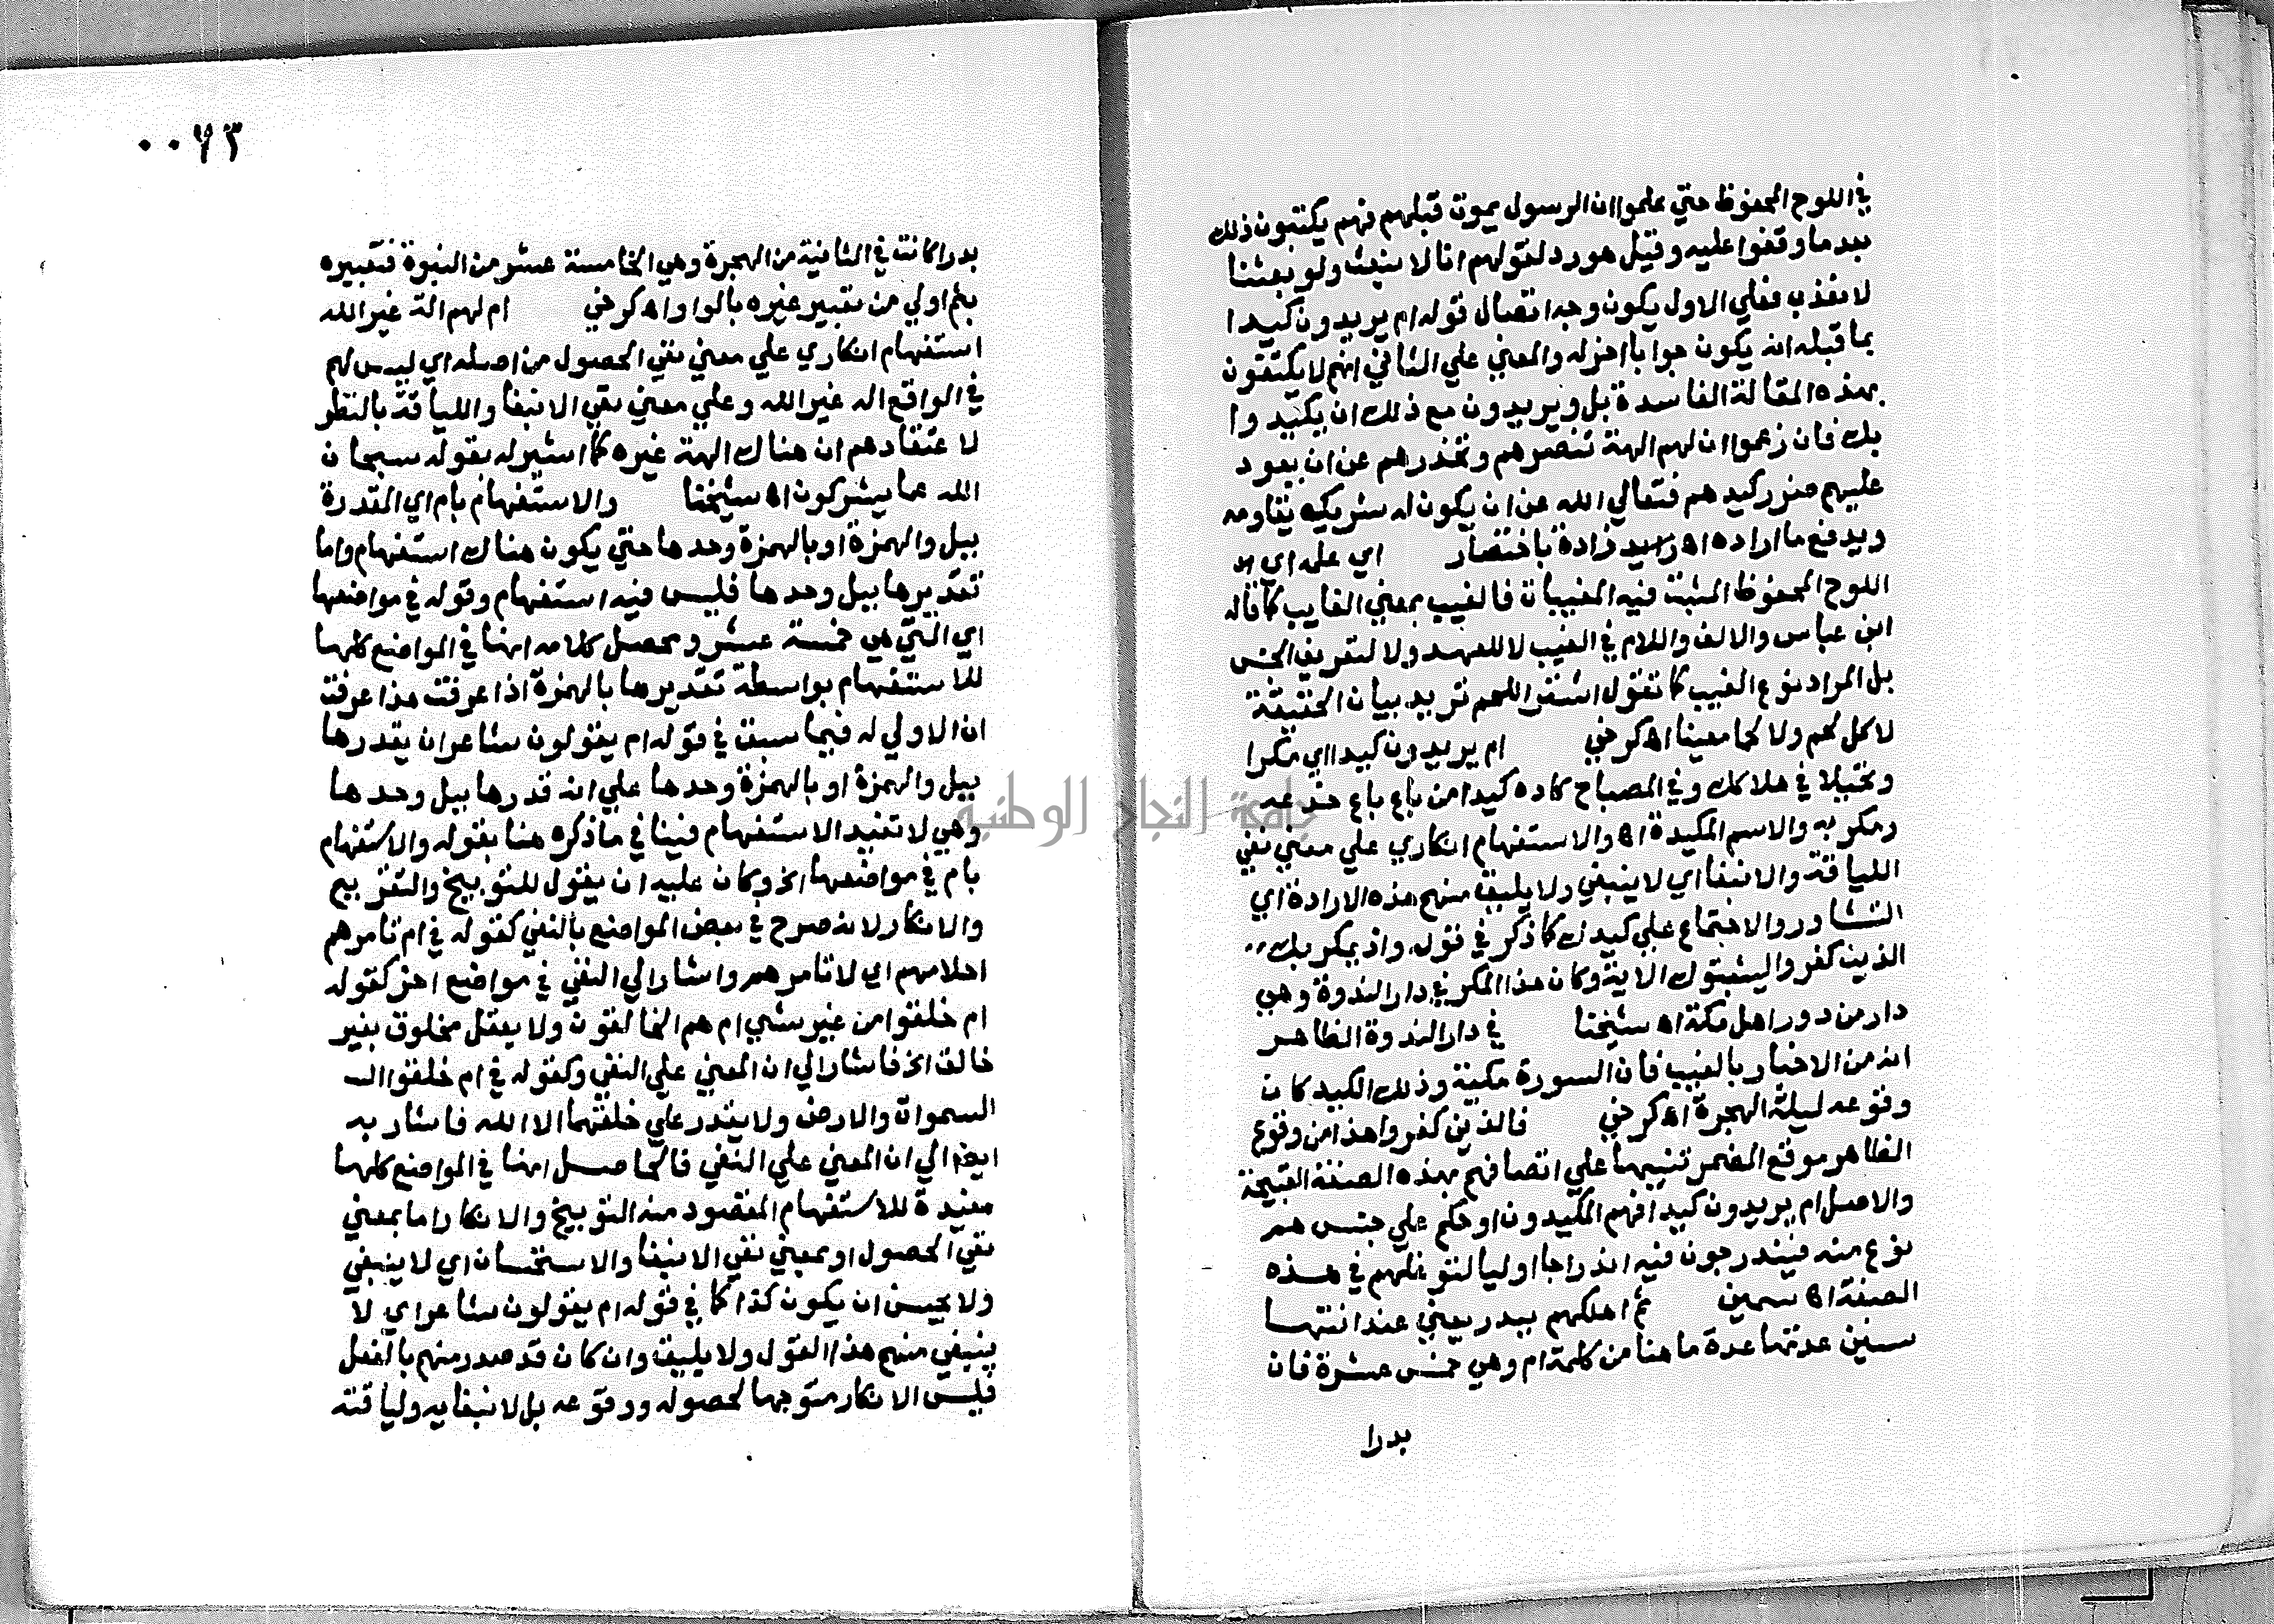 في اللوح المحفوظ حتي علموا ان الرسول يموت قبلهم فهم يكتبون ذلك
بعد ما وقفوا عليه وقيل هو رد لقولهم انا لا نبعث ولو بعثنا
لا نعذب فعلي الاول يكون وجه اتصال قوله ام يريدون كيدا
بما قبله انه يكون جوابا اخر له والمعني علي الثاني انهم لا يكتفون
بهذه المقالة الفاسدة بل ويريدون مع ذلك ان يكيدوا
بك فان زعموا ان لهم الهة تنصرهم وتحذرهم عن ان يعود
عليهم ضرر كيدهم فتعالي الله عن ان يكون له شريك يقاومه
ويدفع ما اراده اه زاده باختصار اي علمه اي
اللوح المحفوظ المثبت فيه المغيبات فالغيب بمعني الغايب كما قاله
ابن عباس والالف واللام في الغيب لا للعهد ولا لتعريف الجنس
بل المراد نوع الغيب كما تقول اشتر اللحم تريد بيان الحقيقة
لا كل لحم ولا لحما معينا اه كرخي ام يريدون كيدا اي مكرا
وتحيلا في هلاكك وفي المصباح كاده كيدا من باب باع خدعه
ومكر به والاسم المكيدة اه والاستفهام انكاري علي معني نفي
اللياقة والانبغا اي لا ينبغي ولا يليق منهم هذه الارادة اي
التشاور والاجتماع علي كيدك كما ذكر في قوله واذ يمكر بك
الذين كفروا ليثبتوك الاية وكان هذا المكر في دار الندوة وهي
دار من دور اهل مكة اه شيخنا في دار الندوة الظاهر
انه من الاخبار بالغيب فان السورة مكية وذلك الكيد كان
وقوعه ليلة الهجرة اه كرخي فالذين كفروا هذا من وقوع
الظاهر موقع المضمر تنبيها علي اتصافهم بهذه الصفة القبيحة
والاصل ام يريدون كيدا فهم المكيدون او حكم علي جنس هم
نوع منه فيندرجون فيه اندراجا اوليا لتوغلهم في هذه
الصفة اه سمين ثم اهلكهم ببدر يعني عند انتها
سنين عدتها عدة ما هنا من كلمة ام وهي خمس عشرة فان
بدرا
٠٠٦٣
بدرا كانت في الثانية من الهجرة وهي الخامسة عشر من النبوة فتعبيره
بثم اولي من تعبير غيره بالواو اه كرخي ام لهم اله غير الله
استفهام انكاري علي معني نفي الحصول من اصله اي ليس لهم
في الواقع اله غير الله وعلي معني نفي الانبغا واللياقة بالنظر
لاعتقادهم ان هناك الهة غيره كما اشير له بقوله سبحان
الله عما يشركون اه شيخنا والاستفهام بام اي المقدرة
ببل والهمزة او بالهمزة وحدها حتي يكون هناك استفهام واما
تقديرها ببل وحدها فليس فيه استفهام وقوله في مواضعها
اي التي هي خمسة عشر ومحصل كلامه انها في المواضع كلها
للاستفهام بواسطة تقديرها بالهمزة اذا عرفت هذا عرفت
ان الاولي له فيما سبق في قوله ام يقولون شاعر ان يقدرها
ببل والهمزة او بالهمزة وحدها علي انه قدرها ببل وحدها
وهي لا تفيد الاستفهام فينافي ما ذكره هنا بقوله والاستفهام
بام في مواضعها الخ وكان عليه ان يقول للتوبيخ والتقريع
والانكار لانه صرح في بعض المواضع بالنفي كقوله في ام تامرهم
احلامهم اي لا تامرهم واشار الي النفي في مواضع اخر كقوله
ام خلقوا من غير شي ام هم الخالقون ولا يعقل مخلوق بغير
خالق الخ فاشار الي ان المعني علي النفي وكقوله في ام خلقوا الس
السموات والارض ولا يقدر علي خلقهما الا الله فاشار به
ايضا الي ان المعني علي النفي فالحاصل انها في المواضع كلها
مفيدة للاستفهام المقصود منه التوبيخ والانكار اما بمعني
نفي الحصول او بمعني نفي الانبغا والاستحسان اي لا ينبغي
ولا يحسن ان يكون كذا كما في قوله ام يقولون شاعر اي لا
ينبغي منهم هذا القول ولا يليق وان كان قد صدر منهم بالفعل
فليس الانكار متوجها لحصوله ووقوعه بل لانبغايه ولياقته
جامعة النجاح الوطنية